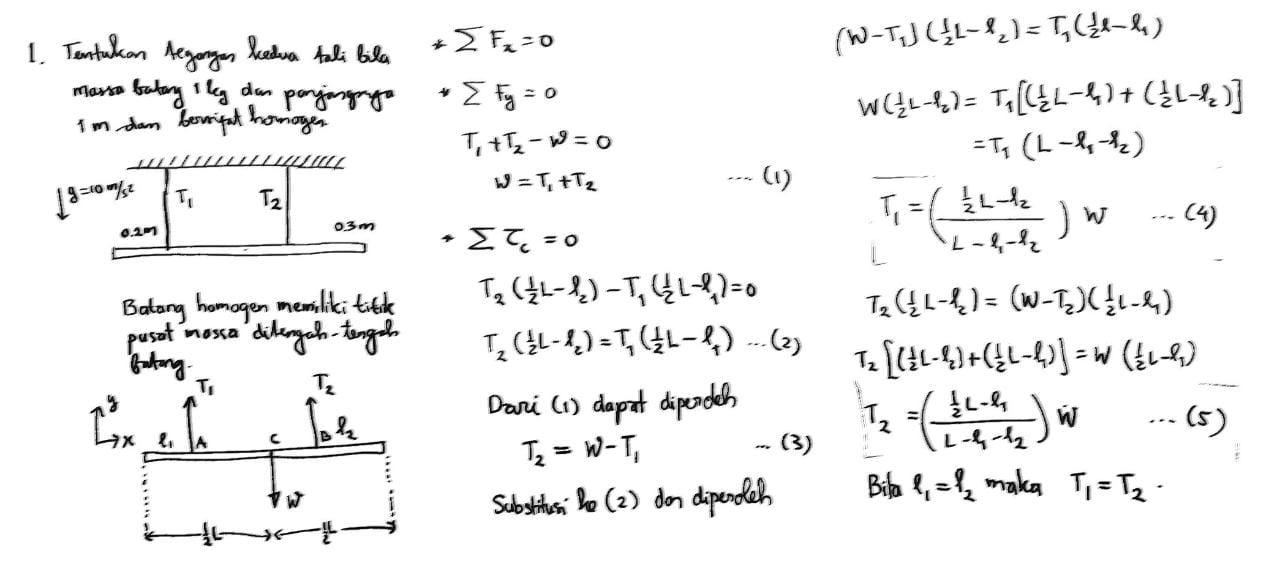 1. Tentukan tegangan kedua tali bila
massa batang 1 kg dan panjangnya
1 m dan bersifat homogen
g=10 m/s²
T₁
T₂
0.2m
0.3m
Batang homogen memiliki titik
pusat massa ditengah-tengah
batang.
T₁
T₂
y
x
l₁
A
C
B
l₂
W
½L
½L
* ∑ Fₓ = 0
* ∑ Fy = 0
T₁ + T₂ - W = 0
W = T₁ + T₂ .... (1)
* ∑ τ_c = 0
T₂ (½L - l₂) - T₁ (½L - l₁) = 0
T₂ (½L - l₂) = T₁ (½L - l₁) ... (2)
Dari (1) dapat diperoleh
T₂ = W - T₁ ... (3)
Substitusi ke (2) dan diperoleh
(W - T₁) (½L - l₂) = T₁ (½l - l₁)
W (½L - l₂) = T₁ [(½L - l₁) + (½L - l₂)]
= T₁ (L - l₁ - l₂)
T₁ = ((½L - l₂)/(L - l₁ - l₂)) W .... (4)
T₂ (½L - l₂) = (W - T₂) (½L - l₁)
T₂ [(½L - l₂) + (½L - l₁)] = W (½L - l₁)
T₂ = ((½L - l₁)/(L - l₁ - l₂)) W .... (5)
Bila l₁ = l₂ maka T₁ = T₂.